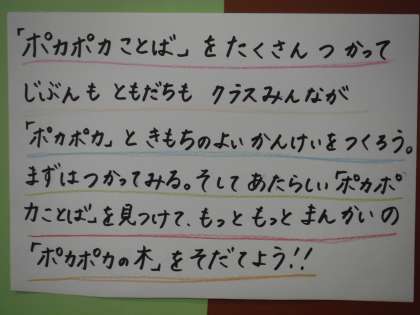 「ポカポカことば」をたくさんつかって
じぶんも ともだちも クラスみんなが
「ポカポカ」ときもちのよいかんけいをつくろう。
まずはつかってみる。そしてあたらしい「ポカポ
カことば」を見つけて、もっともっとまんかいの
「ポカポカの木」をそだてよう!!